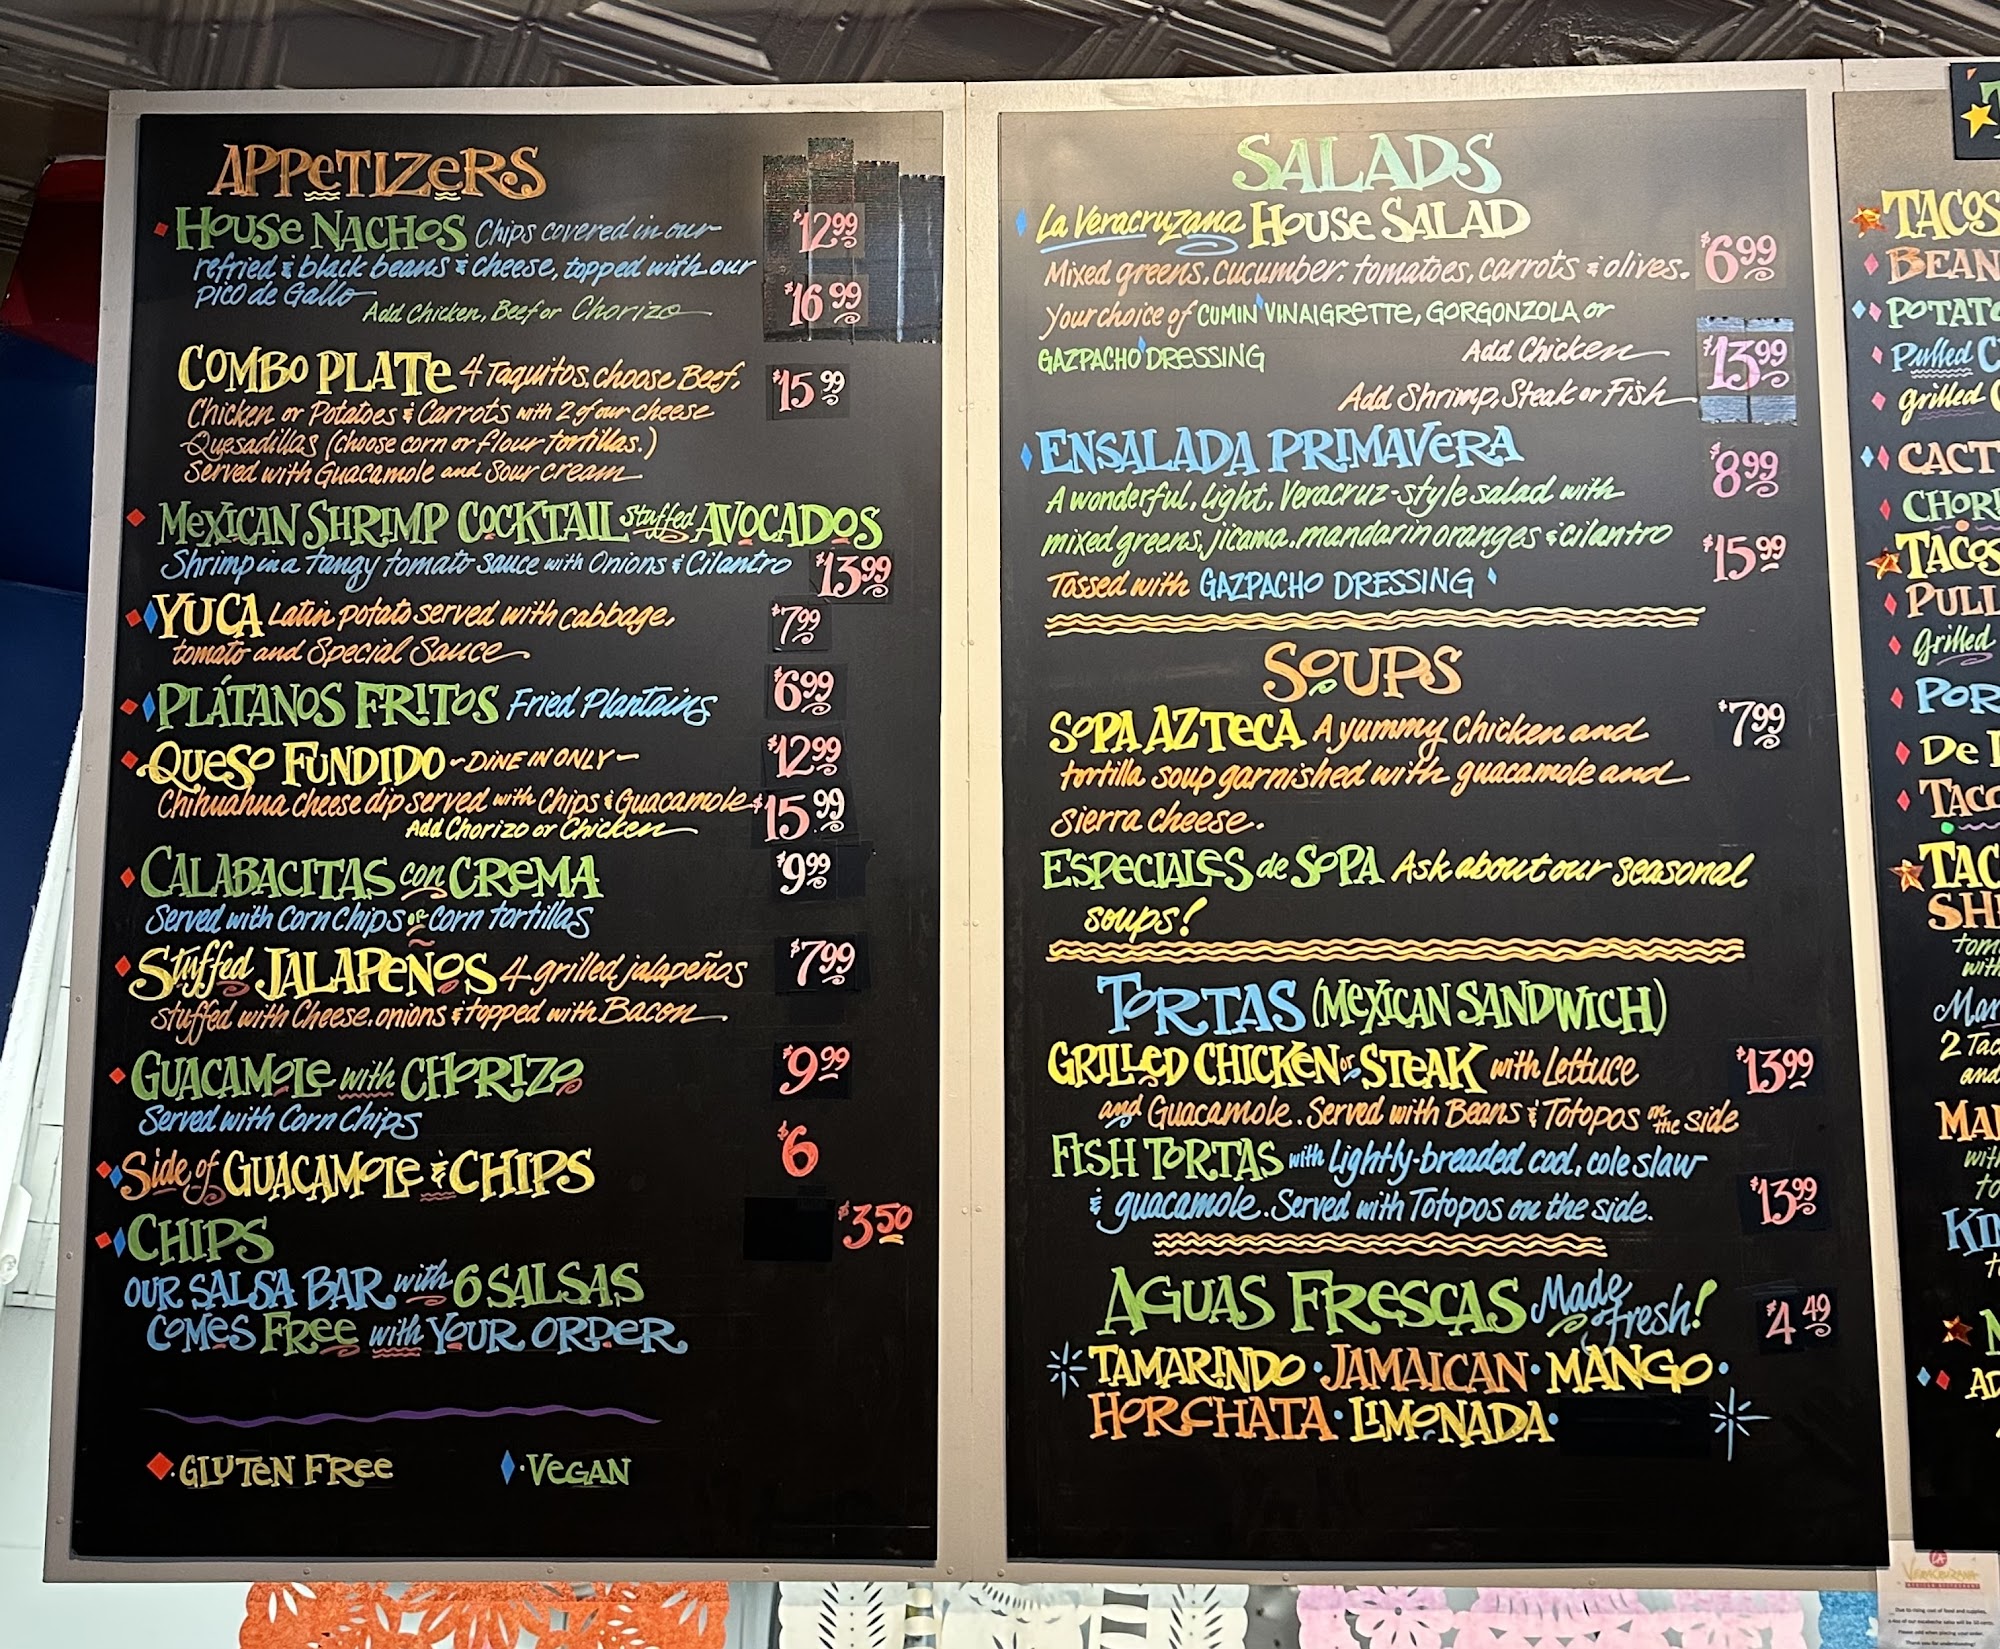 APPETIZERS
HOUSE NACHOS Chips covered in our $12.99
refried & black beans & cheese, topped with our
pico de Gallo
Add Chicken, Beef or Chorizo $16.99
COMBO PLATE 4 Taquitos, choose Beef, $15.99
Chicken or Potatoes & Carrots with 2 of our cheese
Quesadillas (choose corn or flour tortillas.)
Served with Guacamole and Sour cream
MEXICAN SHRIMP COCKTAIL stuffed AVOCADOS
Shrimp in a tangy tomato sauce with Onions & Cilantro $13.99
YUCA Latin potato served with cabbage, $7.99
tomato and Special Sauce
PLÁTANOS FRITOS Fried Plantains $6.99
QUESO FUNDIDO ~DINE IN ONLY~ $12.99
Chihuahua cheese dip served with Chips & Guacamole $15.99
Add Chorizo or Chicken
CALABACITAS con CREMA $9.99
Served with Corn Chips or corn tortillas
Stuffed JALAPEÑOS 4 grilled jalapeños $7.99
stuffed with Cheese, onions & topped with Bacon
GUACAMOLE with CHORIZO $9.99
Served with Corn Chips
Side of GUACAMOLE & CHIPS $6
CHIPS $3.50
OUR SALSA BAR with 6 SALSAS
COMES FREE with YOUR ORDER
GLUTEN FREE
VEGAN
SALADS
La Veracruzana HOUSE SALAD $6.99
Mixed greens, cucumber, tomatoes, carrots & olives.
Your choice of CUMIN VINAIGRETTE, GORGONZOLA or
GAZPACHO DRESSING Add Chicken $13.99
Add Shrimp, Steak or Fish
ENSALADA PRIMAVERA $8.99
A wonderful, light, Veracruz-style salad with
mixed greens, jicama, mandarin oranges & cilantro $15.99
Tossed with GAZPACHO DRESSING
SOUPS
SOPA AZTECA A yummy Chicken and $7.99
tortilla soup garnished with guacamole and
sierra cheese.
ESPECIALES de SOPA Ask about our seasonal
soups!
TORTAS (MEXICAN SANDWICH)
GRILLED CHICKEN or STEAK with Lettuce $13.99
and Guacamole. Served with Beans & Totopos on the side
FISH TORTAS with Lightly-breaded cod, cole slaw
& guacamole. Served with Totopos on the side. $13.99
AGUAS FRESCAS Made fresh! $4.49
TAMARINDO • JAMAICAN • MANGO •
HORCHATA • LIMONADA •
TACOS
BEAN
Pulled
grilled
TACOS
PULL
Grilled
De
with
2
and
with
VERACRUZANA
Due to rising cost of food and supplies,